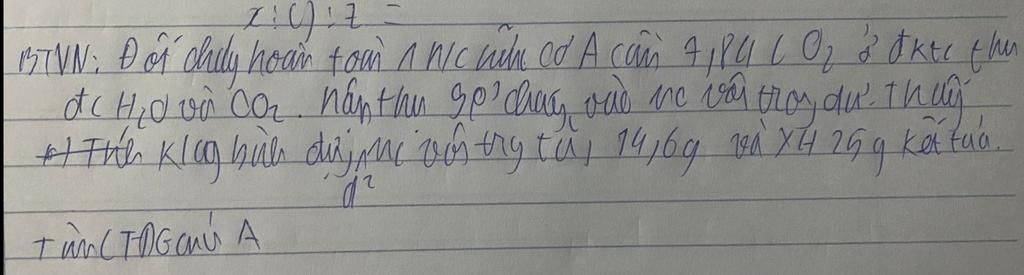 x : y : z =
BTVN: Đốt cháy hoàn toàn 1 h/c hữu cơ A cần 7,84 L O2 ở đktc thu
đc H2O và CO2. Dẫn thu sp' cháy vào nc vôi trog dư. Thấy
+) Thấy klg bình đựng nc vôi trg tăng 14,6g và XH 25g kết tủa.
d²
Tìm CTĐG của A